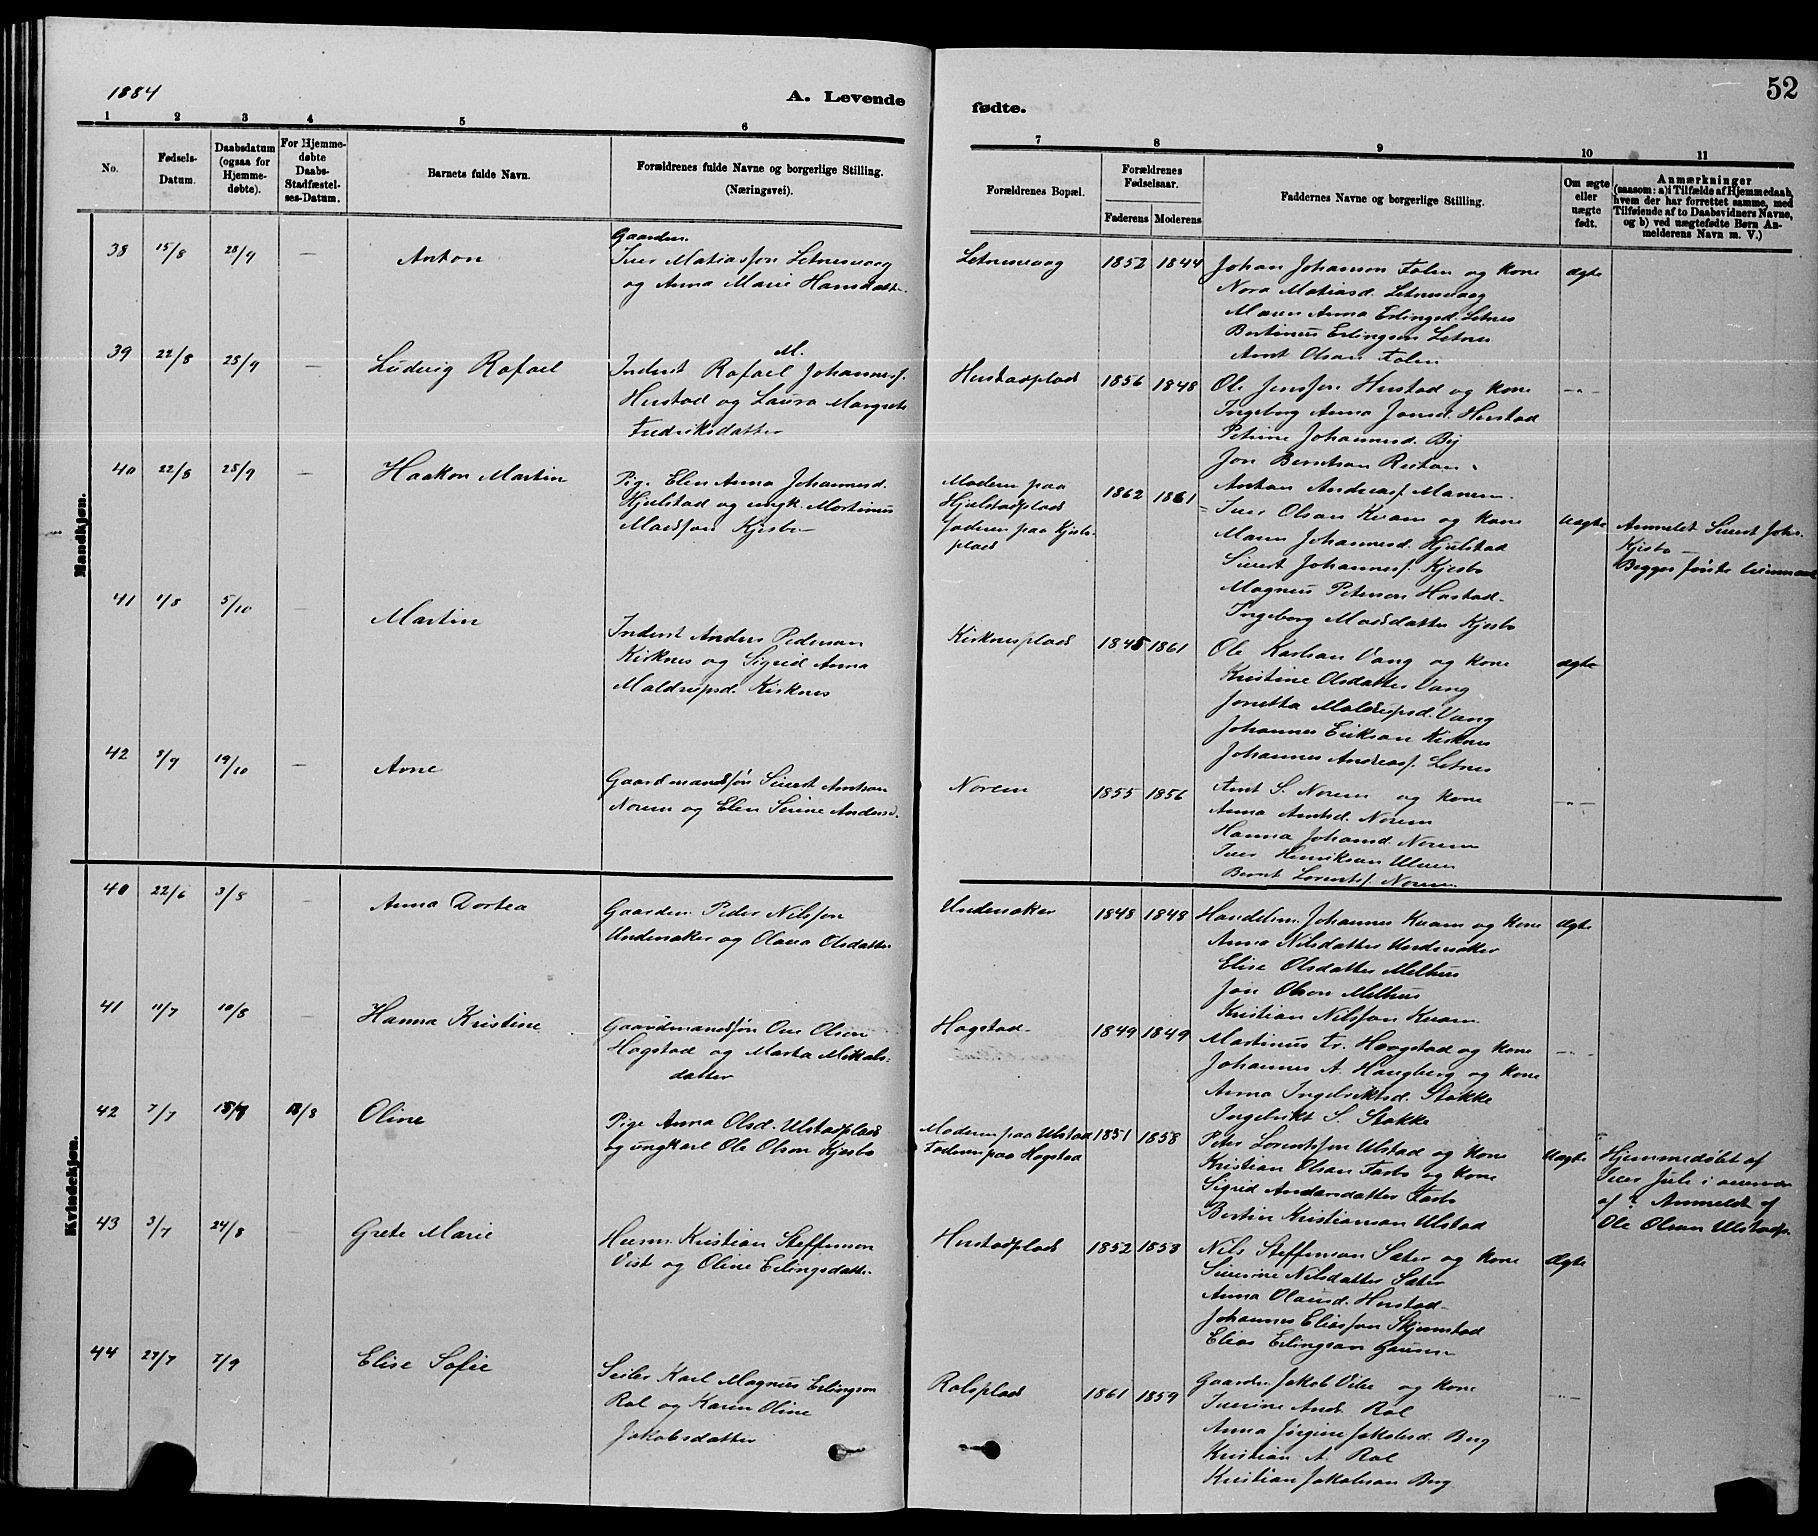 1884
A. Levende
fødte.
52
1 2 3 4 5 6 7 8 9 10 11
No.
Fødsels-Datum.
Daabsdatum (ogsaa for Hjemme-døbte).
For Hjemme-døbte Daabs-Stadfæstel-ses-Datum.
Barnets fulde Navn.
Forældrenes fulde Navne og borgerlige Stilling. (Næringsvei).
Forældrenes Bopæl.
Forældrenes Fødselsaar.
Faderens Moderens
Faddernes Navne og borgerlige Stilling.
Om ægte eller uægte født.
Anmærkninger
(saasom: a) i Tilfælde af Hjemmedaab, hvem der har forrettet samme, med Tilføiende af to Daabsvidners Navne, og b) ved uægtefødte Børn Anmelderens Navn m. V.)
Mandkjøn.
38 15/8 28/9 — Anton
Gaardm.
Iver Matiasson Letnesvaag
og Anna Marie Hansdatter.
Letnesvaag 1852 1844
Johan Johanson Folen og Kone
Nora Matiasd. Letnesvaag
Maren Anna Erlingsd. Letnes
Bertinus Erlingsen Letnes
Arnt Olsen Folen
ægte
39 22/8 28/9 — Ludvig Rafael
M.
Inderst Rafael Johannesf.
Hustad og Laura Margrete
Fredriksdatter
Hustadplads 1856 1848
Ole Jensson Hustad og Kone
Ingeborg Anna Jonsd. Hustad
Petrine Johannesd. By
Jon Berntson Rostan
—"—
40 22/8 28/9 — Haakon Martin
Pige Elen Anna Johannesd.
Hjulstad og ungk. Martinus
Madsson Kjesbo
Moderen paa
Hjulstadplads
faderen paa Kjesbo-
plads
1862 1861
Anton Andreasf. Manem.
Iver Olsan Kvam og Kone
Maren Johannesd. Hjulstad
Sivert Johannesf. Kjesbo
Magnus Peterson Hustad
Ingeborg Madsdatter Kjesbo
Uægte
Anmeldt Sivert Johs.
Kjesbo —
Begges første Leiermaal
41 1/8 5/10 — Martin
Inderst Anders Pederson
Kirknes og Sigrid Anna
Kirknes
Kirknesplads 1845 1861
Ole Karlsan Vang og Kone
Kristine Olsdatter Vang
Vang
Johannes Erikson Kirknes
Johannes Andreasf. Letnes
ægte
42 8/9 19/10 — Arne
Gaardmandssøn Sivert Arntson
Norem og Elen Serine Andersd.
Norem 1855 1856
Arnt S. Norem og Kone
Anna Arntsd. Norem
Hanna Johansd. Norem
Iver Henriksan Ulven
Bernt Lorentsf. Norem
—"—
Kvindekjøn.
40 22/6 3/8 — Anna Dortea
Gaardm. Peder Nilsson
Undersaker og Olava Olsdatter
Undersaker 1848 1848
Handelsm. Johannes Kvam og Kone
Anna Nilsdatter Undersaker
Elise Olsdatter Melhus
Jon Olson Melhus
Kristian Nilsson Kvam
Ægte
41 11/7 10/8 — Hanna Kristine
Gaardmandssøn Ole Olson
Hogstad og Marta Mikals-
datter
Hogstad 1849 1849
Martinus Tr. Haugstad og Kone
Johannes A. Haugberg og Kone
Anna Ingebriktsd. Stokke
Ingebrikt S. Stokke
—"—
42 7/7 15/7 18/8 Oline
Pige Anna Olsd. Ulstadplads
og ungkarl Ole Olson Kjesbo
Moderen paa Ulstad
Faderen paa Hogstad
1851 1858
Peter Lorentsson Ulstad og Kone
Kristian Olsan Fasbo og Kone
Sigrid Andersdatter Fasbo
Bertin Kristianson Ulstad
Uægte
Hjemmedøbt af
Anmeldt af
Ole Olsan Ulstadp.
43 3/7 24/8 — Grete Marie
Husm. Kristian Steffenson
Vist og Oline Erlingsdatter
Hustadplads 1852 1858
Nils Steffenson Sater og Kone
Sivrine Nilsdatter Sater
Anna Olausd. Hustad
Johannes Eliasson Skjemstad
Elias Erlingsan
Ægte
44 27/7 7/9 Elise Sofie
Seiler Karl Magnus Erlingson
Rol og Karen Oline
Jakobsdatter
Rolsplads 1861 1859
Gaardm. Jakob Vibe og Kone
Iverine And. Rol
Anna Jørgine Jakobsd. Berg
Kristian A. Rol
Kristian Jakobson Berg
—"—